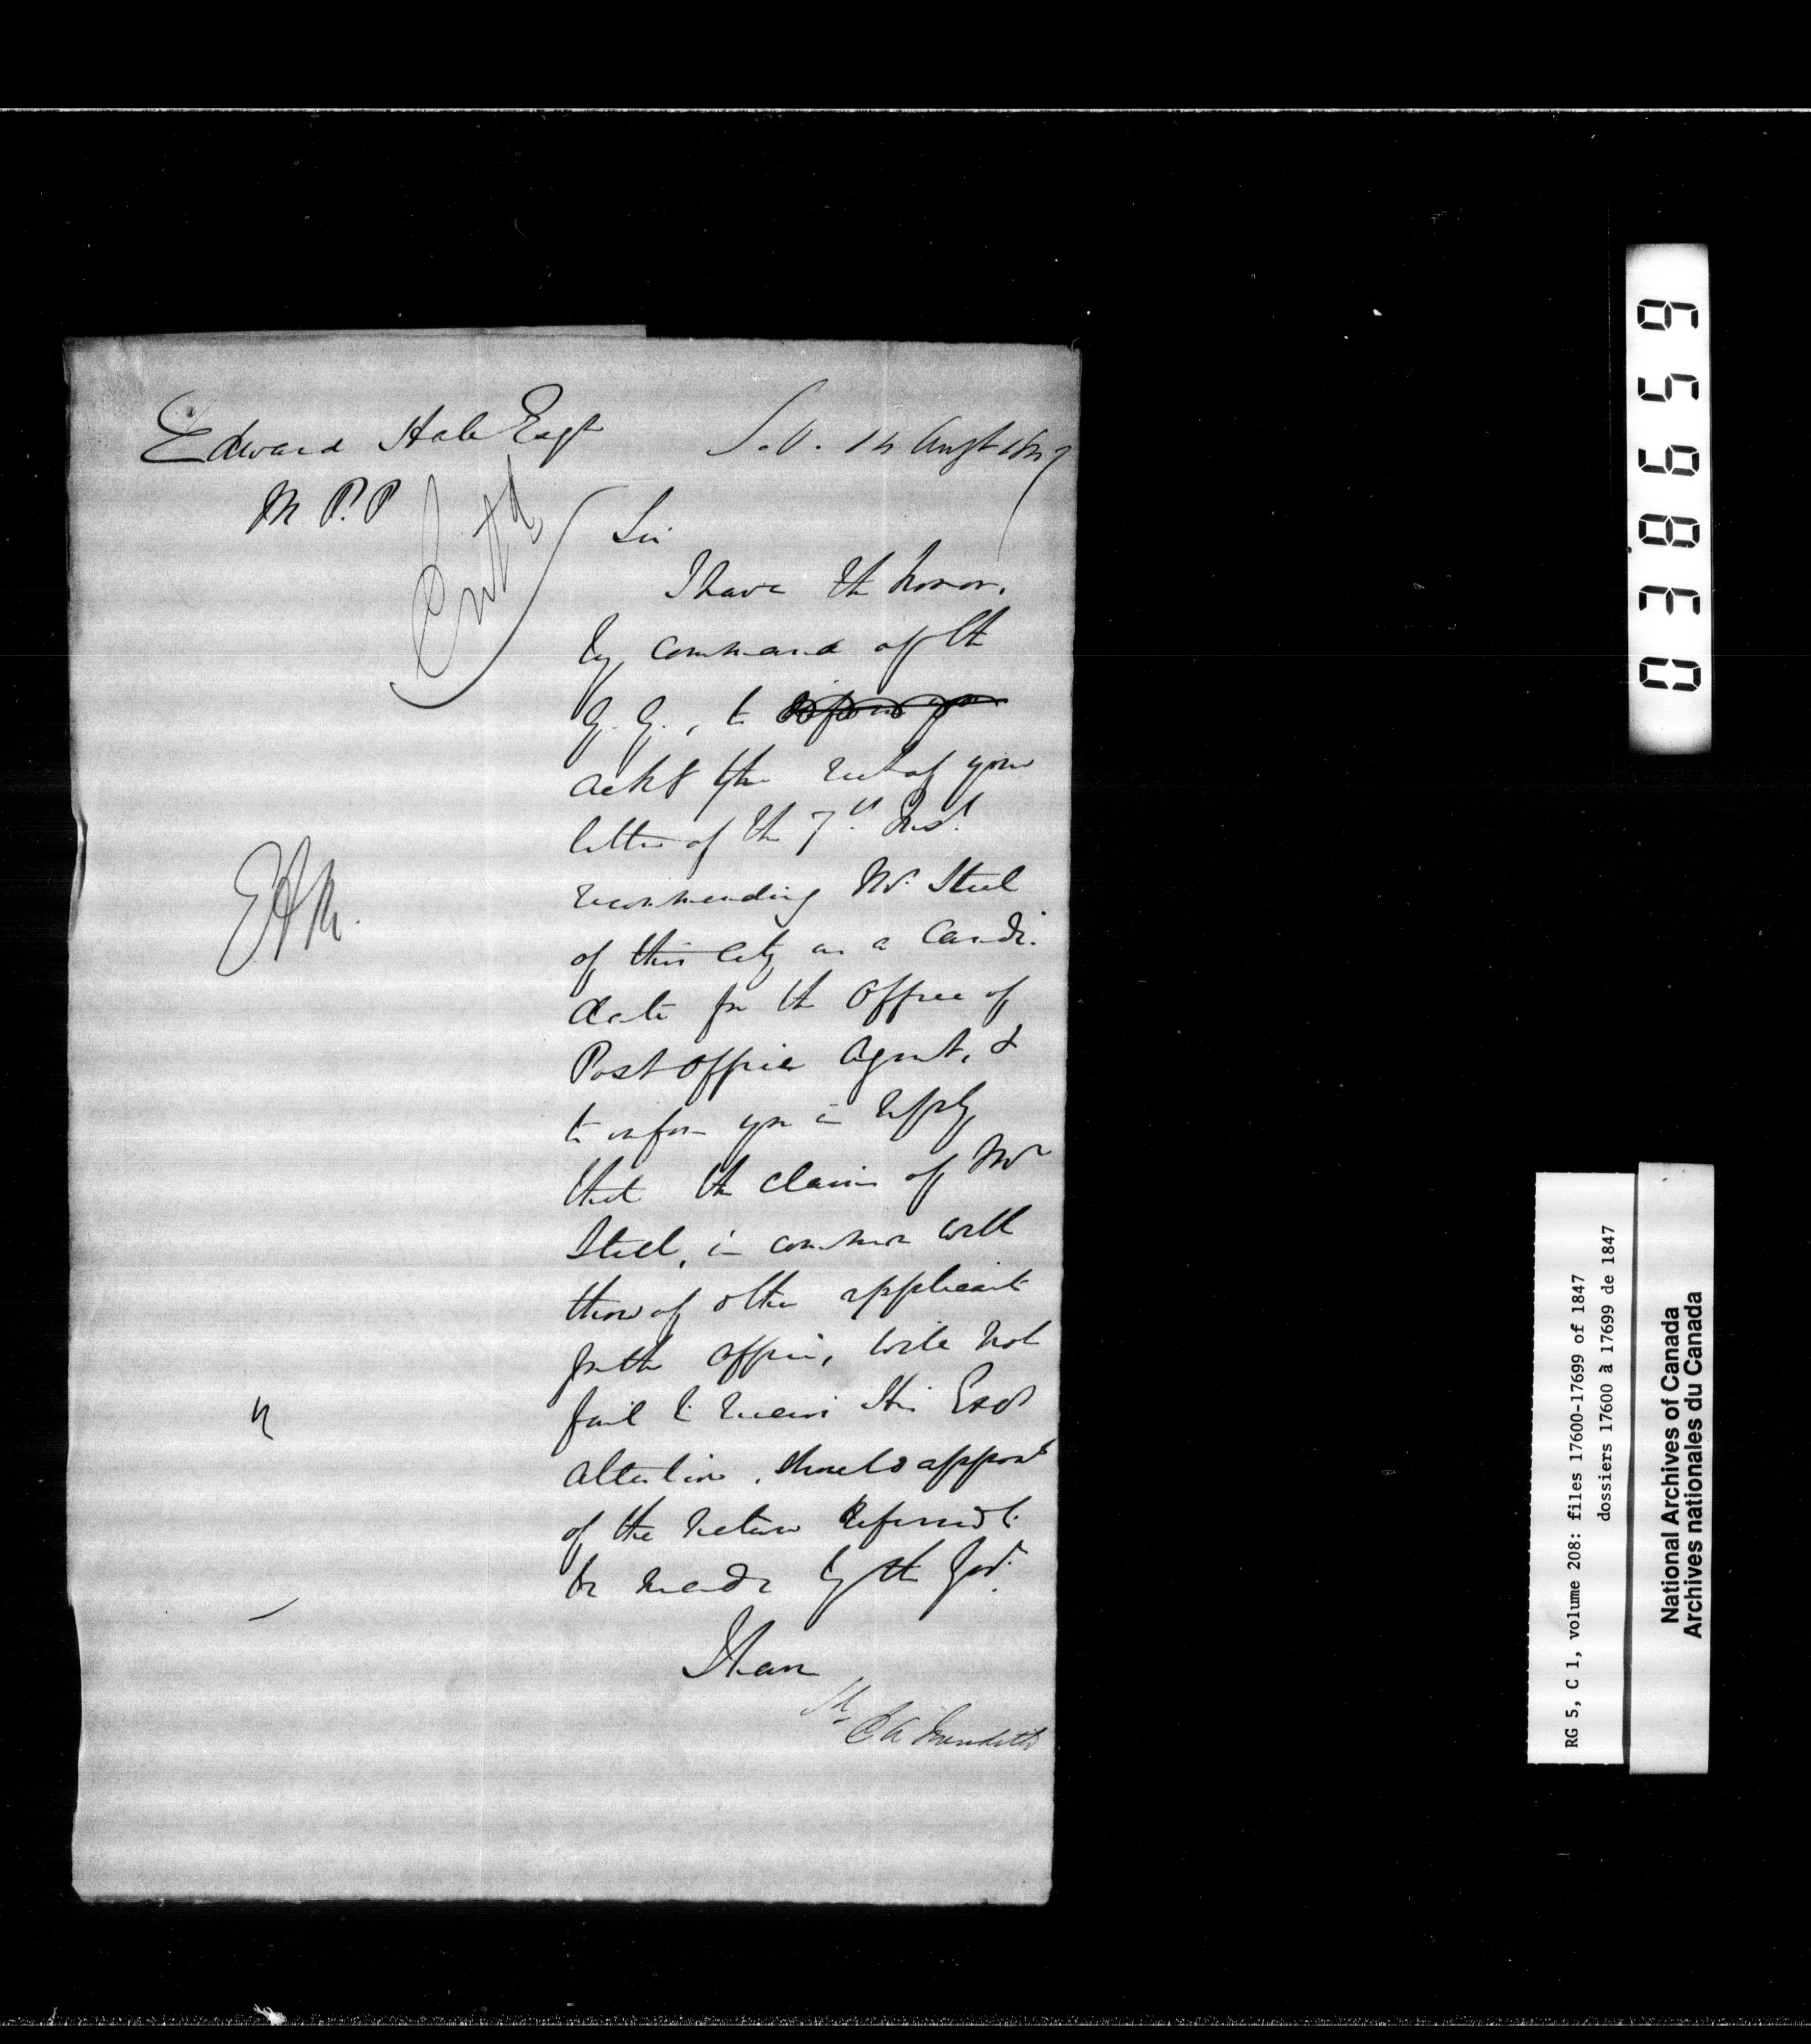 Edward Hale Esqr
M P. P
S.O. 14 Augt 1847
Entd
Sir
I have the honor,
by command of the
G. G., to inform you
ackg the rect of your
letter of the 7th Inst.
recommending Mr. Steel
of this City as a Candi-
date for the Office of
Post Office Agent, &
to inform you in reply
that the claim of Mr
Steel, in common with
those of other applicants
for the office, will not
fail to receive His Excys
attention, should appont
of the nature referred to
be made by the Govt.
I have
EAM.
E A Meredith
038659
RG 5, C 1, volume 208: files 17600-17699 of 1847
dossiers 17600 à 17699 de 1847
National Archives of Canada
Archives nationales du Canada